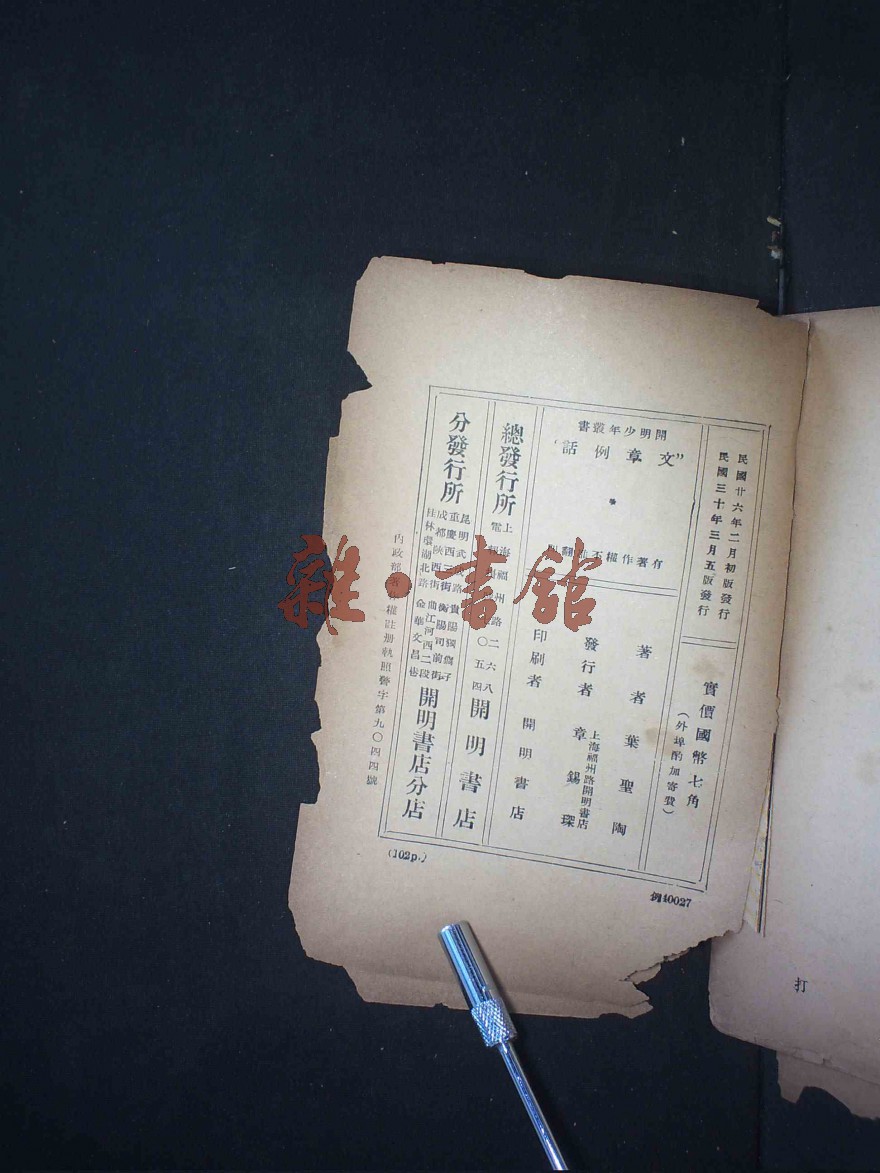 民國廿六年二月初版發行
民國三十年三月五版發行
實價國幣七角
(外埠酌加寄費)
開明少年叢書
“文章例話”
有著作權不准翻印
著者 葉聖陶
發行者 章錫琛
上海福州路開明書店
印刷者 開明書店
總發行所
上海福州路二六八
電
〇五四
開明書店
分發行所
昆明武成路
重慶西
成都陝西街
桂林環湖北路
貴陽獨獅子
衡陽司前街
曲江河西二段
金華文昌巷
開明書店分店
內政部著作權註冊執照警字第九〇四四號
(102p.)
例40027
打
雜·書館